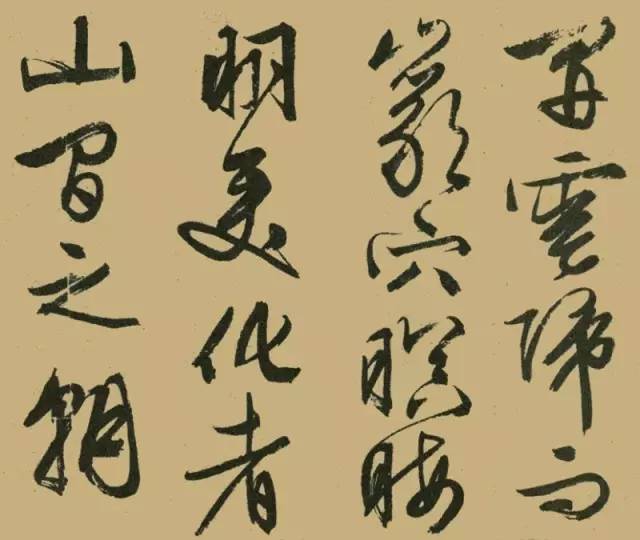 開雲歸而
巖穴暝晦
明變化者
山間之朝